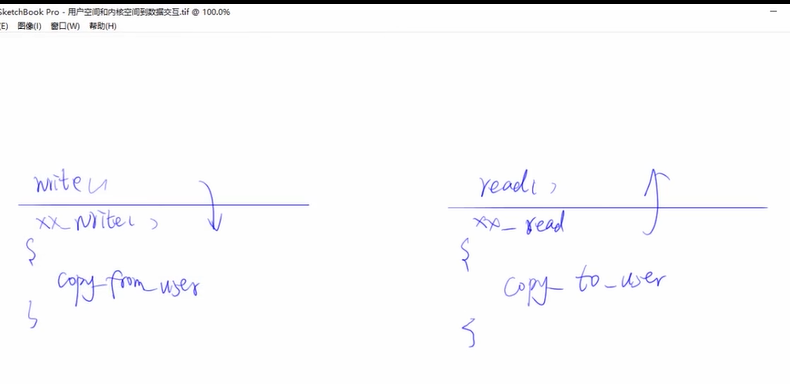 SketchBook Pro - 用户空间和内核空间到数据交互.tif @ 100.0%
(E) 图像(I) 窗口(W) 帮助(H)
write()
xx_write()
{
copy_from_user
}
read()
xx_read
{
copy_to_user
}